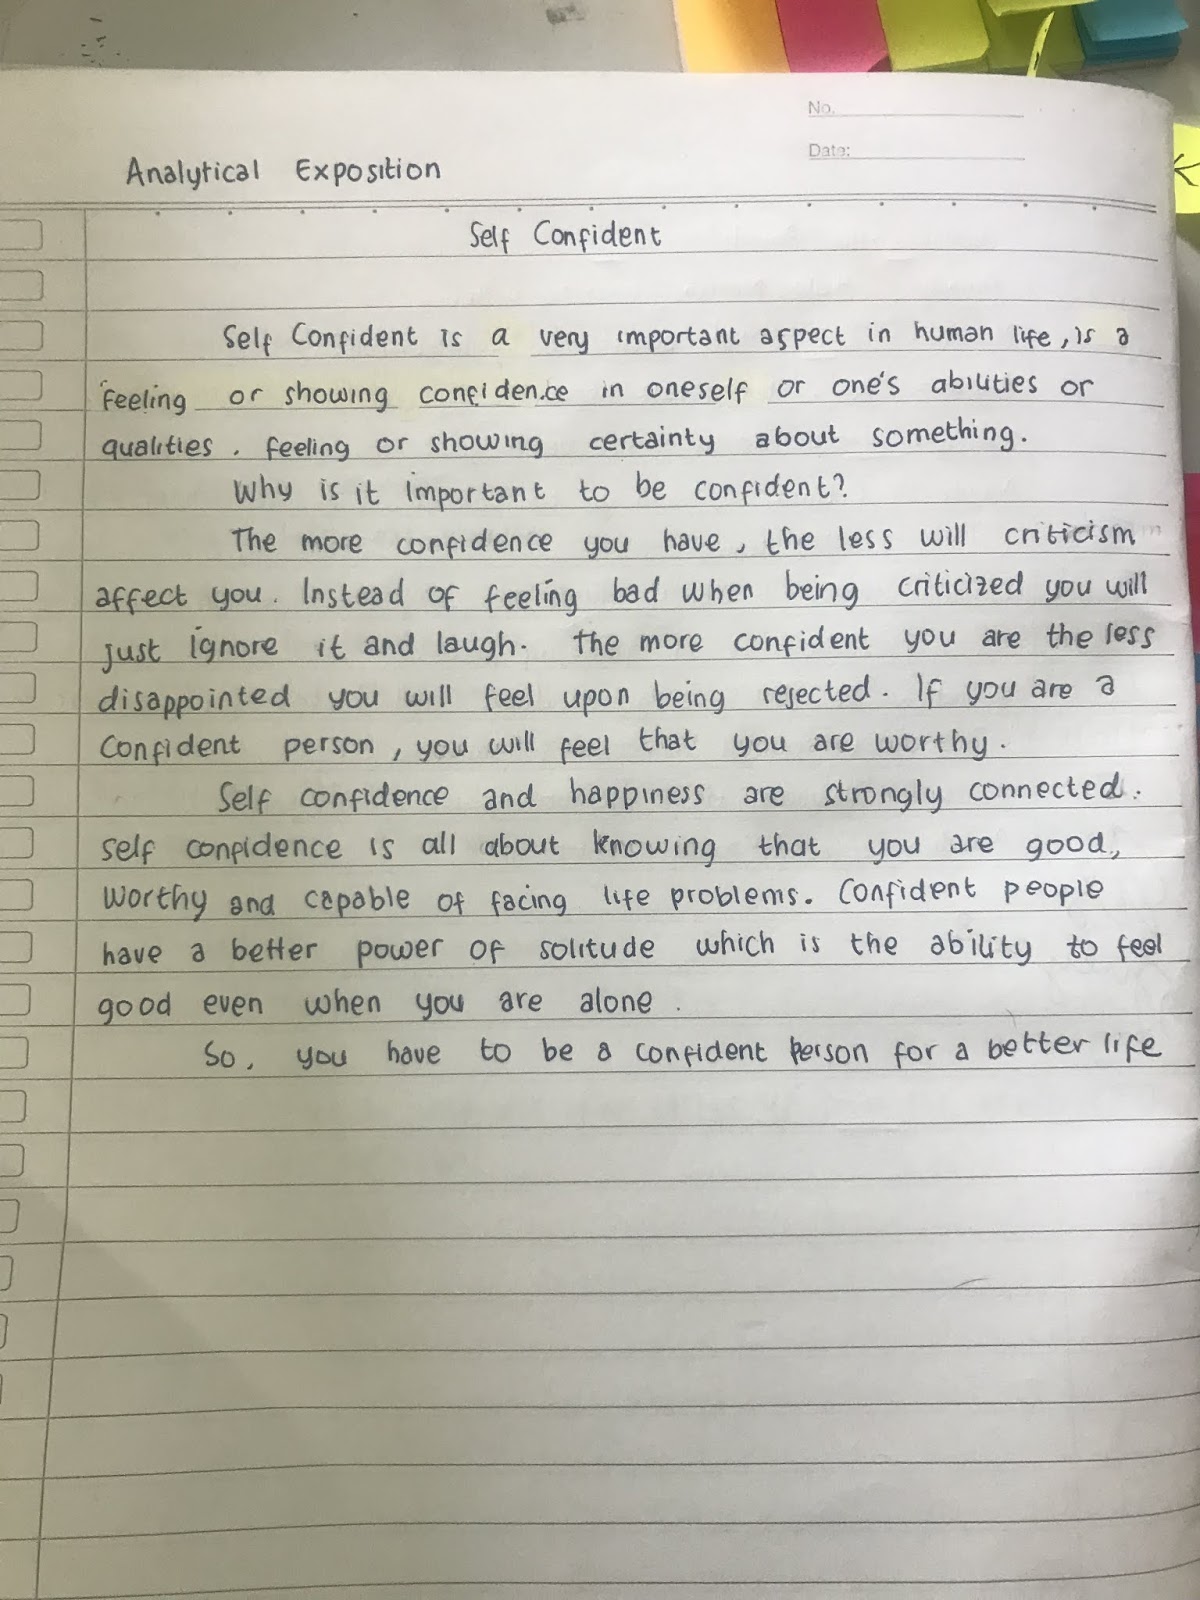 No.
Date:
Analytical Exposition
Self Confident
Self Confident is a very important aspect in human life, is a
feeling or showing confidence in oneself or one's abilities or
qualities. feeling or showing certainty about something.
Why is it important to be confident?
The more confidence you have, the less will criticism
affect you. Instead of feeling bad when being criticized you will
just ignore it and laugh. The more confident you are the less
disappointed you will feel upon being rejected. If you are a
confident person, you will feel that you are worthy.
Self confidence and happiness are strongly connected.
self confidence is all about knowing that you are good,
worthy and capable of facing life problems. Confident people
have a better power of solitude which is the ability to feel
good even when you are alone.
So, you have to be a confident person for a better life